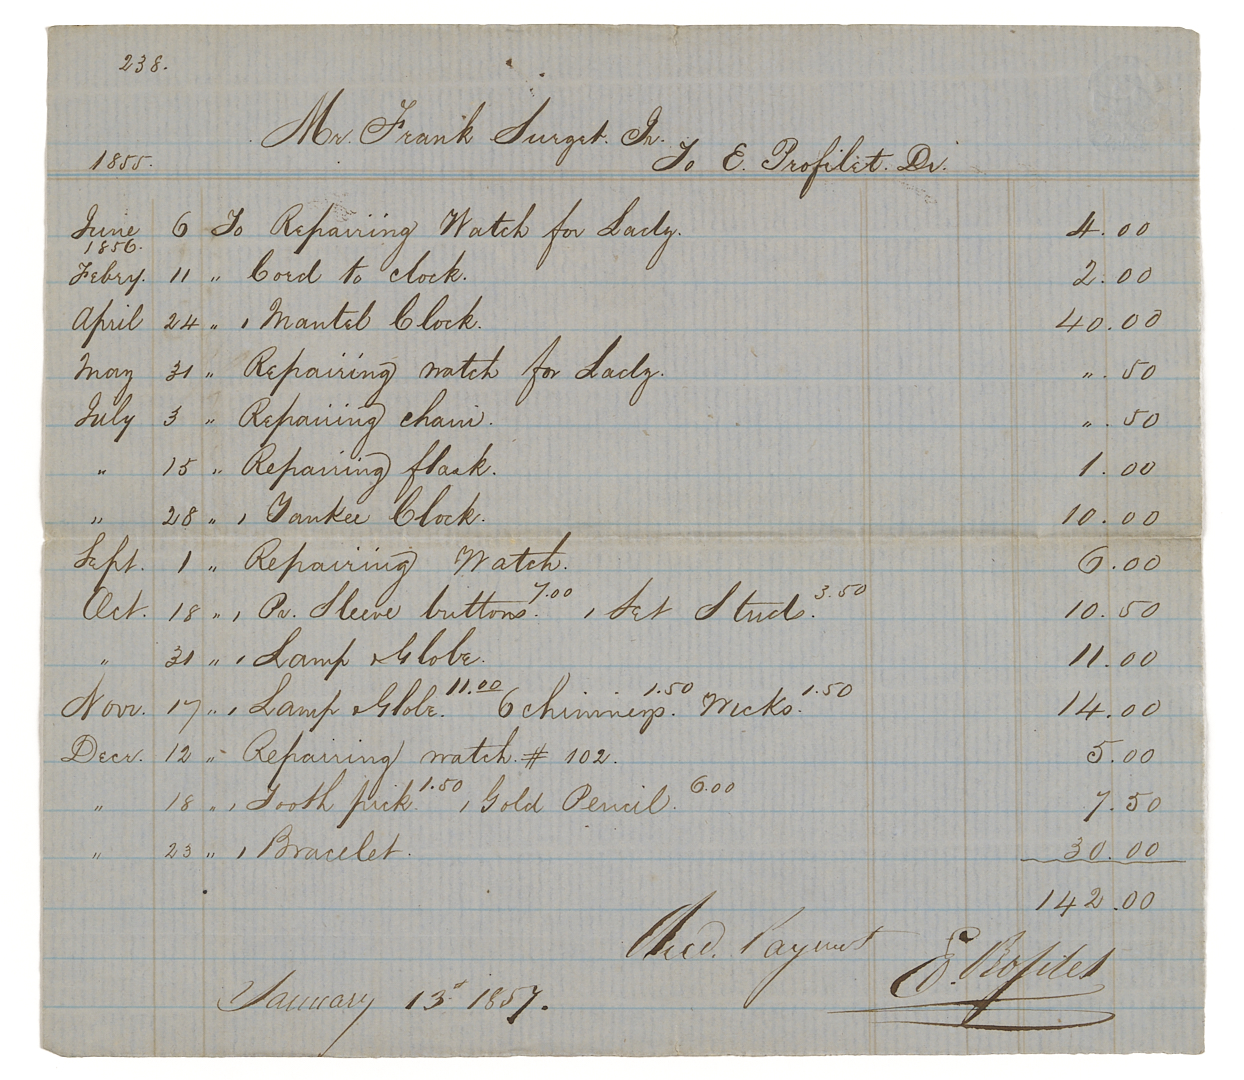 238.
Mr. Frank Surget. Jr.
1855. To E. Profilet. Dr.
June 6 To Repairing Watch for Lady. 4.00
1856.
Febry. 11 " Cord to clock. 2.00
April 24 " 1 Mantel Clock. 40.00
May 31 " Repairing watch for Lady. ".50
July 3 " Repairing chain. ".50
" 15 " Repairing flask. 1.00
" 28 " 1 Yankee Clock. 10.00
Sept. 1 " Repairing Watch. 6.00
Oct. 18 " 1 Pr. Sleeve buttons. 7.00 1 Set Studs. 3.50 10.50
" 31 " 1 Lamp & Globe. 11.00
Novr. 17 " 1 Lamp & Globe. 11.00 6 chimneys. 1.50 Wicks. 1.50 14.00
Decr. 12 " Repairing watch. # 102. 5.00
" 18 " 1 Tooth pick. 1.50 1 Gold Pencil. 6.00 7.50
" 23 " 1 Bracelet. 30.00
142.00
Recd. Payment E. Profilet
January 13th 1857.